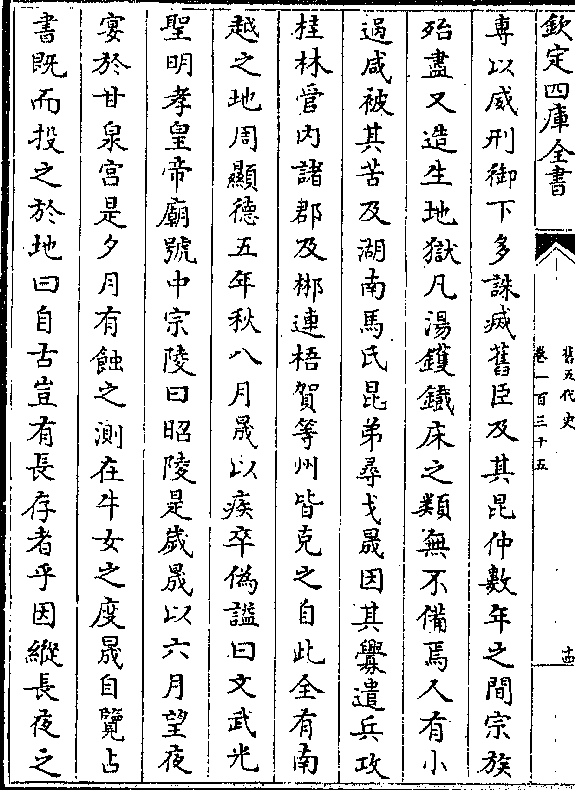 欽定四庫全書
舊五代史
卷一百三十五
十四
專以威刑御下多誅滅舊臣及其昆仲數年之間宗族
殆盡又造生地獄凡湯鑊鐵床之類無不備焉人有小
過咸被其苦及湖南馬氏昆弟尋戈晟因其釁遣兵攻
桂林管內諸郡及郴連梧賀等州皆克之自此全有南
越之地周顯德五年秋八月晟以疾卒偽諡曰文武光
聖明孝皇帝廟號中宗陵曰昭陵是歲晟以六月望夜
宴於甘泉宮是夕月有蝕之測在牛女之度晟自覽占
書既而投之於地曰自古豈有長存者乎因縱長夜之